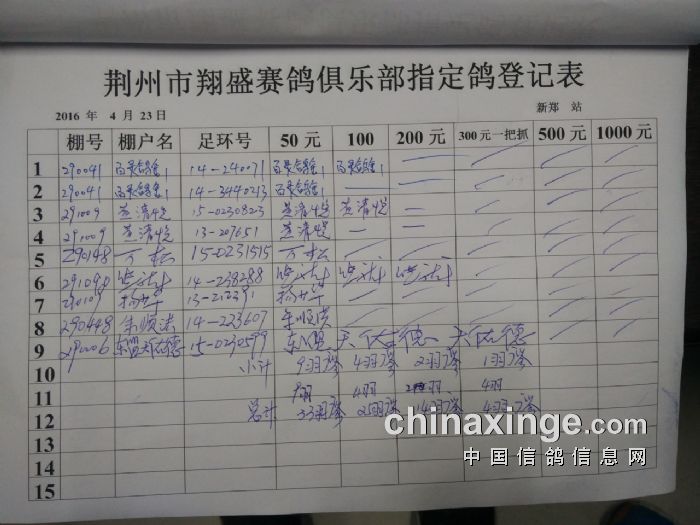 荆州市翔盛赛鸽俱乐部指定鸽登记表
2016 年 4 月 23 日 新郑 站
棚号 棚户名 足环号 50 元 100 200 元 300 元一把抓 500 元 1000 元
1 290041 14-240071
2 290041 14-3440213 —
3 291009 黄清悦 15-0230823 黄清悦 黄清悦 —
4 291009 黄清悦 13-207651 黄清悦 — —
5 290148 万松 15-0231515 万松
6 291090 14-238288
7 290109 杨华 13-212391 杨华
8 290448 朱顺洪 14-223607 朱顺洪
9 291006 东盟天佑德 15-0230599 东盟天佑德 天佑德
10 小计 9羽次 4羽次 2羽次 1羽次
11 9羽 4羽 羽 4羽
12 总计 33羽次 25羽次 14羽次 4羽次
13
14
15
chinaxinge.com
中国信鸽信息网